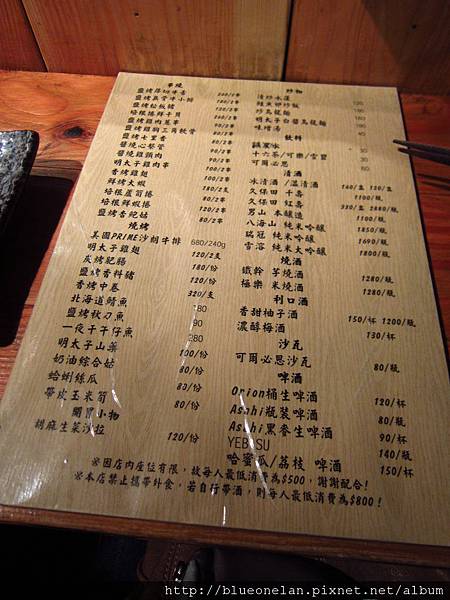 串燒
鹽烤厚切牛舌 200/2串
鹽烤無骨牛小排
鹽烤松板豬
培根捲鮮干貝
鹽烤雞肉蔥串
鹽烤雞胸三角軟骨
鹽烤七里香
醬燒心螫管
醬燒雞頸肉
明太子雞肉串
香烤雞翅
鮮烤大蝦 180/2支
培根蘆筍捲 90/2串
培根鮮蝦捲 90/2串
鹽烤香鮀菇 80/2串
燒烤
美國PRIME沙朗牛排 680/240g
明太子雞翅 120/2支
炭烤肥腸 180/份
鹽烤香料豬 120/份
香烤中卷 320/支
北海道鯖魚 180
鹽烤秋刀魚 90
一夜干午仔魚 280
明太子山藥
奶油綜合菇 100/份
蛤蜊絲瓜 80/份
帶皮玉米筍 80/份
開胃小物
胡麻生菜沙拉 120/份
炒物
清炒水蓮 120
鮭魚卵炒飯
炒烏龍麵
明太子白醬烏龍麵
味噌湯
飲料
鹹粟冰
十六茶/可樂/雪豐 30
可爾必思 80
清酒
冰清酒/溫清酒 160/壺 120/壺
久保田 千壽 1100/瓶
久保田 紅壽 320/壺 2880/瓶
男山 本釀造 1100/瓶
八海山 純米吟釀 1850/瓶
瑞冠 純米吟釀 1690/瓶
雪溶 純米大吟釀 1800/瓶
燒酒
鐵幹 芋燒酒 1280/瓶
極樂 米燒酒 1280/瓶
利口酒
香甜柚子酒 150/杯 1200/瓶
濃醇梅酒 130/杯
沙瓦
可爾必思沙瓦 80/瓶
啤酒
Orion桶生啤酒 120/杯
Asahi瓶裝啤酒 80/瓶
Asahi黑養生啤酒 90/杯
YEBISU 140/瓶
哈蜜瓜/荔枝 啤酒 150/杯
※因店內座位有限，故每人最低消費為$500，謝謝配合！
※本店禁止攜帶外食，若自行帶酒，則每人最低消費為$800！
http://blueonelan.pixnet.net/album